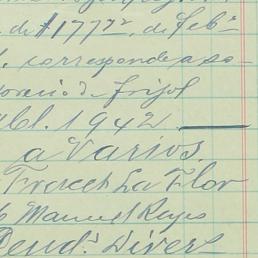 de $1777², de feb°
corresponde a so-
de frijol
1942.
a Varios.
Fracct La Flor
Manuel Reyes
Deud.s Divers